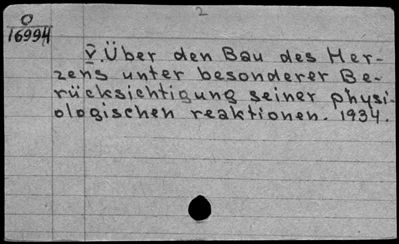 2
O
16994
V. Über den Bau des Her-
zens unter besonderer Be-
rücksichtigung seiner physi-
ologischen reaktionen. 1934.